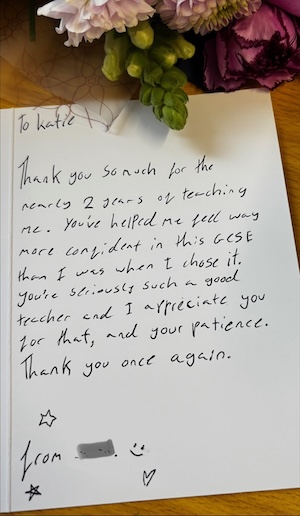 To Katie
Thank you so much for the
nearly 2 years of teaching
me. You've helped me feel way
more confident in this GCSE
than I was when I chose it.
You're seriously such a good
teacher and I appreciate you
for that, and your patience.
Thank you once again.
from .